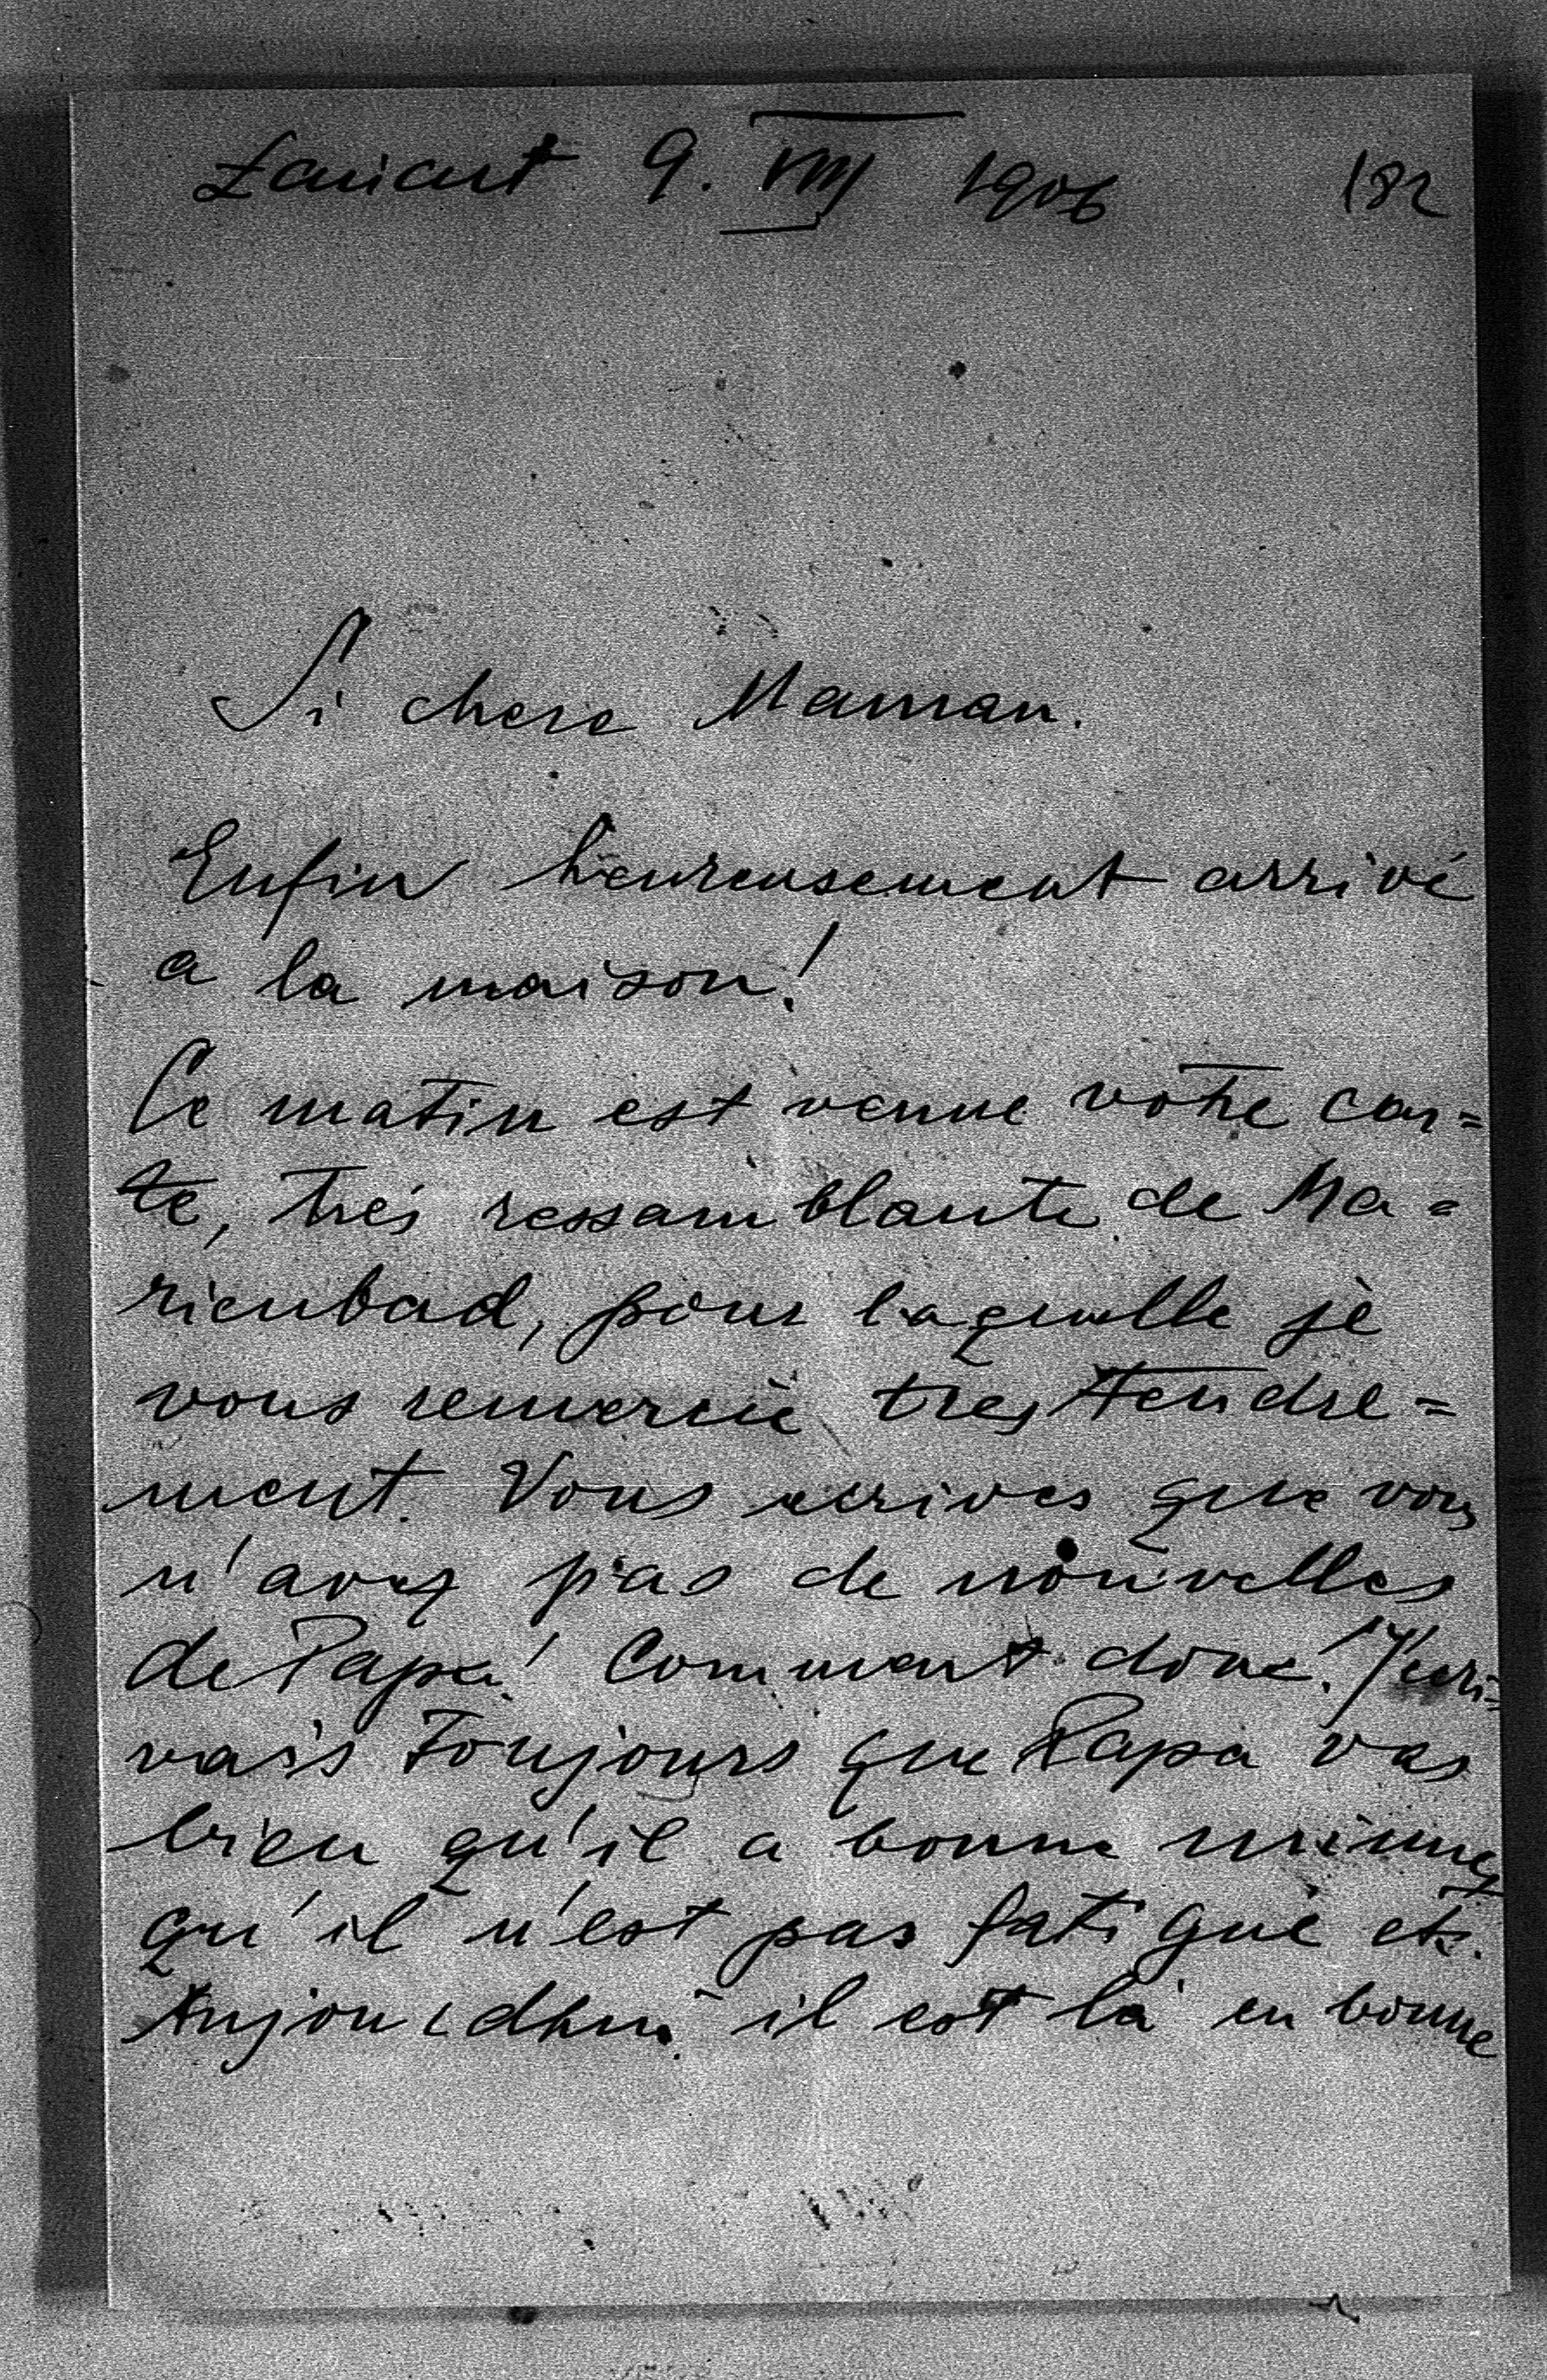 Łańcut 9. VIII 1906 182
Si chere Maman.
Enfin heureusement arrivé
a la maison!
Ce matin est venue votre car=
te, trés ressamblante de Ma=
rienbad, pour laquelle je
vous remercie tres tendre=
ment. Vous ecrives que vous
n'avez pas de nouvelles
de Papa! Comment donc! J'ecri=
vais toujours que Papa vas
bien qu'il a bonne minne,
qu'il n'est pas fatigué etc.
Aujourdhui il est là en bonne